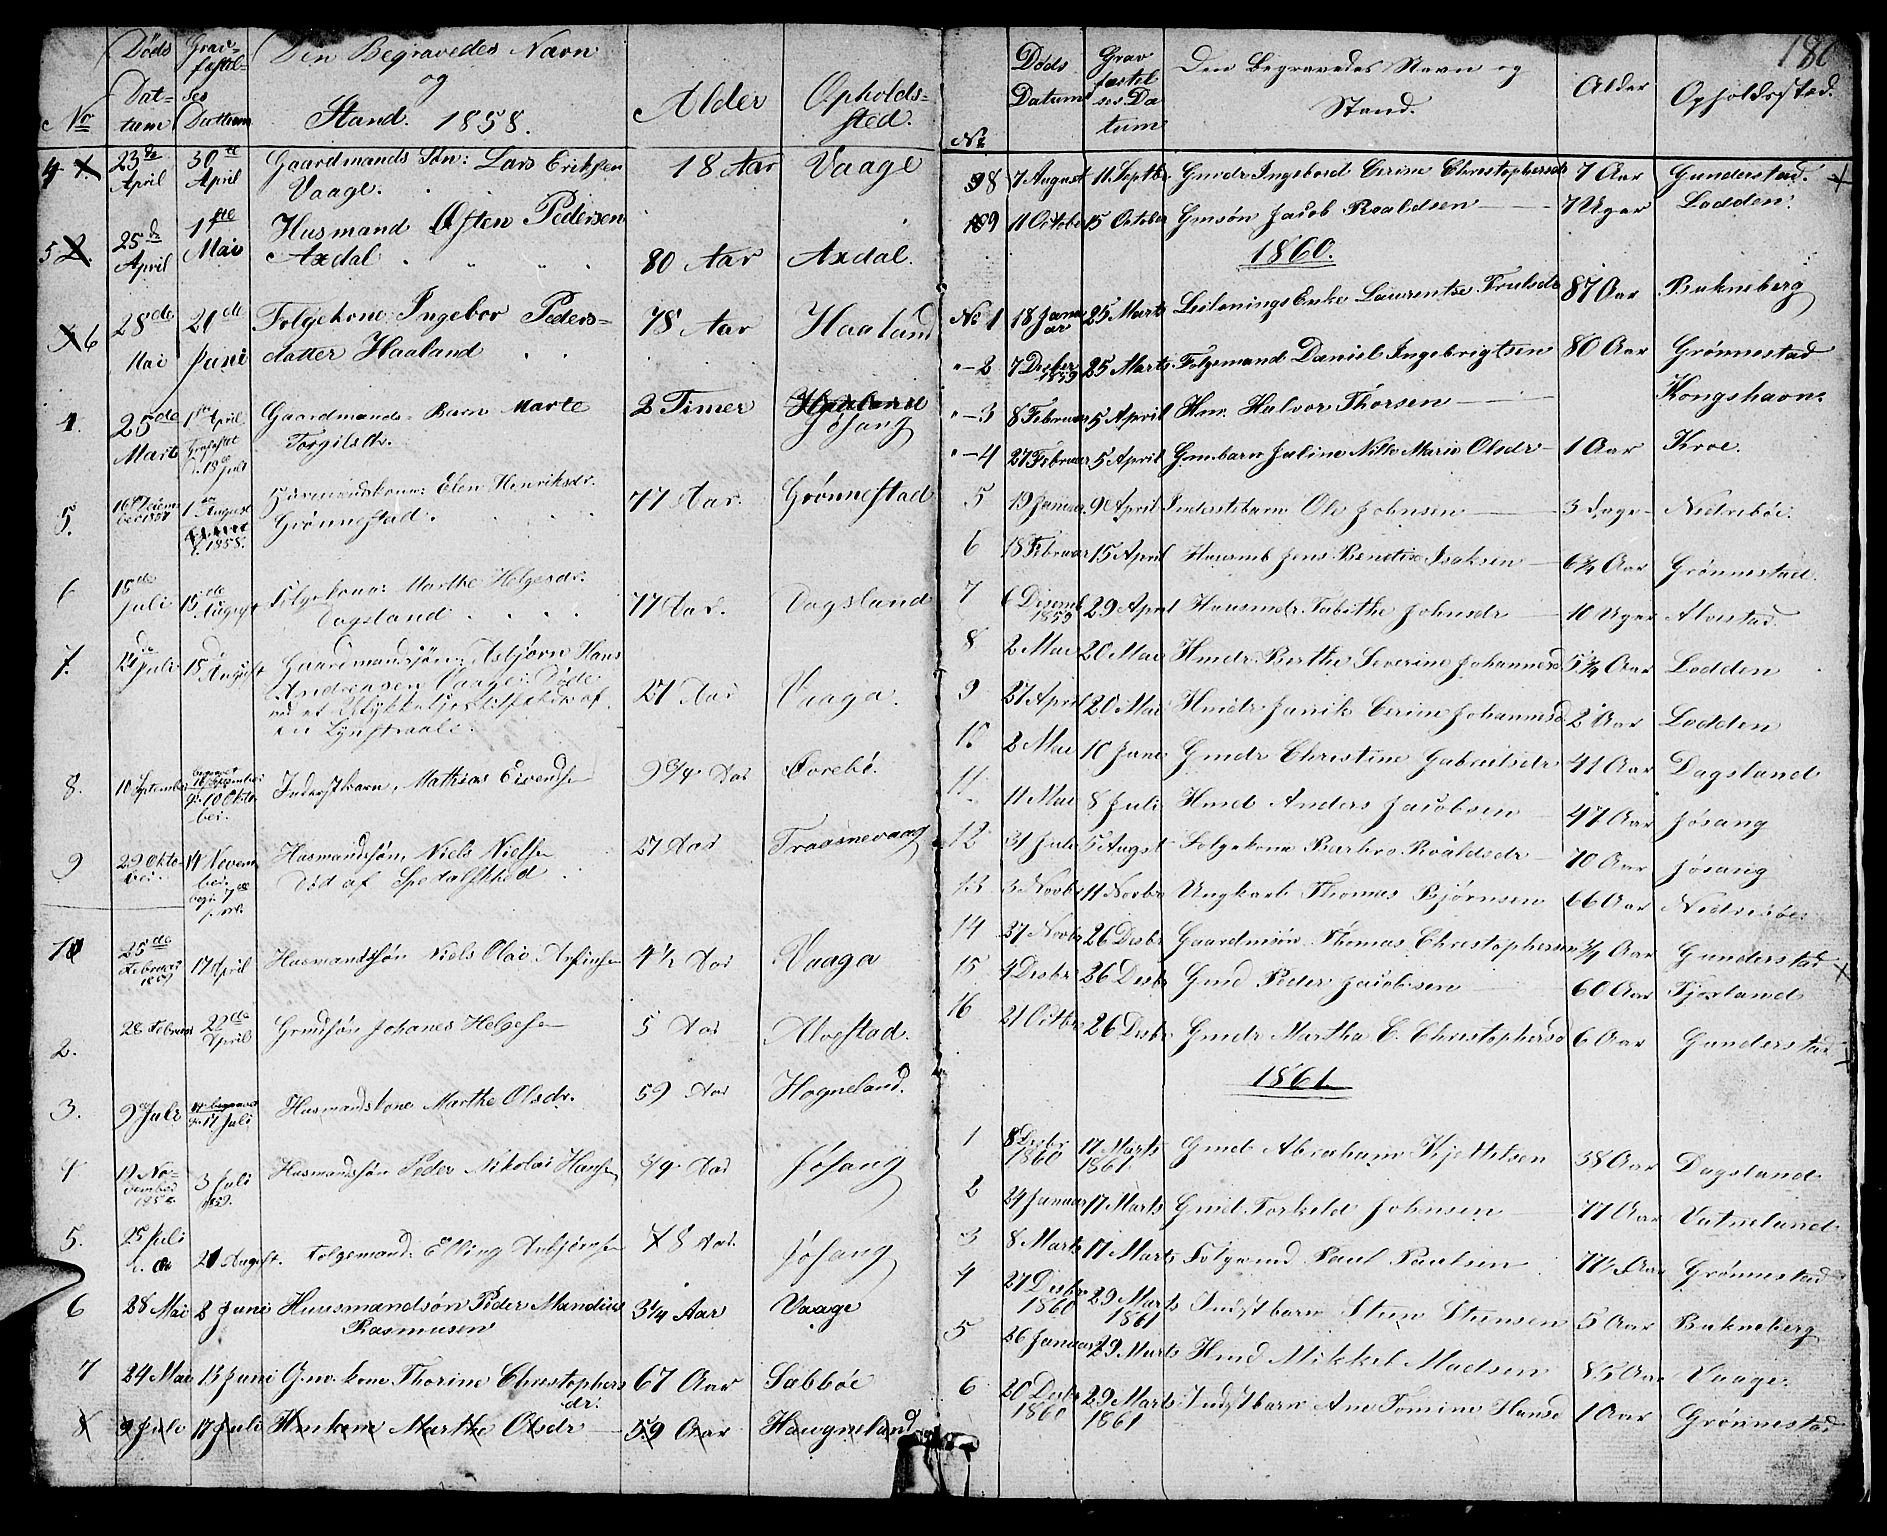 180
Døds Datum Gravfæstelses Dattum Den Begravedes Navn og Stand. 1858. Alder Opholdssted.
No
4 23de April 30te April Gaardmands Søn: Lars Eriksen 18 Aar Vaage
Vaage.
5 25de April 1ste Mai Husmand Østen Pedersen
Axdal 80 Aar Axdal.
6 28de Mai 21de Juni Følgekone Ingebor Peders- 78 Aar Haaland
datter Haaland
4. 25de Marts 1ste April Gaardmands Barn Marte 2 Timer Jøsang
Torgilsdtr. 18de Juli
5. 1ste August 1858. Elen Henriksdr. 77 Aar. Grønnestad
Grønnestad.
6 15de Juli 15de August Følgekone: Marthe Helgesdr.
Dagsland 77 Aar. Dagsland
7. Juli 15 August Gaardmandsøn: Asbjørn Hans
Andreasen Vaage: Døde
ved et Ulykkestilfælde af 27 Aar Vaaga.
en Lynstraale.
8. 10 September 10 Oktober Inderstbarn, Mathias Eivendsen 9 3/4 Aar Qvrebø.
9 29 Oktober 14 November Husmandssøn, Niels Nielsen 27 Aar
Død af Spedalskhed
1 25de Februar 17 April Husmandssøn Niels Olai 4 1/2 Aar Vaaga
2. 28 Februar 22de April Gmdsøn Johanes Helgesen 5 Aar Alvestad.
3. 9de Juli 17 Juli Husmandskone Marthe Olsdr. 59 Aar Hogneland.
4 12 November 3 Juli 1859. Husmandssøn Peder Nikolai Hansen 3/4 Aar Jøsang
5. 25 Juli 21 August. Følgemand: Elling Asbjørnsen 78 Aar. Jøsang
6 28 Mai 2 Juni Huusmandsøn Peder Mandius 3 1/4 Aar Vaage
Rasmusen
7 24 Mai 13 Juni Gm. kone Thorine Christophers 67 Aar Sabbøe
dr.
8 9 Juli 17 Juli Hmkone Marthe Olsdr 59 Aar Haugneland
No Døds Datum Grav fæstelses Datum Den Begravedes Navn og Stand. Alder Opholdssted.
8 7 August 11 Septbr Gmdr Ingebord Serine Christophersdr 7 Aar Gunderstad.
9 11 October 15 October Gmsøn Jacob Roaldsen 7 Uger Lodden.
1860.
No 1 18 Januar 25 Marts Leilænings Enke Laurentse Trulsdr 87 Aar Bukneberg
"-2 7 Decber 1859 25 Marts Følgemand Daniel Ingebrigtsen 80 Aar Grønnestad
"-3 8 Februar 5 April Hm. Halvor Thorsen Kongshavn
"-4 27 Februar 5 April Gmbarn Juline Nille Marie Olsdr 1 Aar Kroe.
5 19 Januar 9 April Inderstebarn Ole Johnsen 3 Dage Nedrebøe.
6 18 Februar 15 April Huusmb Jens Bendix Isaksen 6 3/4 Aar Grønnestad.
7 6 Decemb 1859 29 April Huusmdr. Tabithe Johnsdr 10 Uger Alvestad.
8 2 Mai 20 Mai Hmdr. Berthe Severine Johannesdr 5 3/4 Aar Lodden
9 27 April 20 Mai Hmdr Janik Serine Johannesdr 2 Aar Lodden
10 2 Mai 10 Juni Gmdr Christine Gabrielsdr 41 Aar Dagsland
11 11 Mai 8 Juli Hmd Anders Jacobsen 47 Aar Jøsang
12 31 Juli 5 Augst Følgekone Barbro Roaldsdr 70 Aar Jøsang
13 3 Novbr 11 Novbr Ungkarl Thomas Bjørnsen 66 Aar Nedrebøe.
14 27 Novbr 26 Decbr Gaardmsøn Thomas Christophersen 3/4 Aar Gunderstad
15 4 Decbr 26 Decbr Gmd Peder Jacobsen 60 Aar Fjoxland
16 21 Octbr 26 Decbr Gmdr Martha C. Christophersd 6 Aar Gunderstad
1861
1 8 Decbr 1860 17 Marts 1861 Gmd Abraham Kjettelsen 38 Aar Dagsland
2 24 Januar 17 Marts Gmd Torkild Johnsen 77 Aar Vatneland
3 8 Marts 17 Marts Følgemd Paul Paulsen 77 1/2 Aar Grønnestad
4 27 Decbr 1860 29 Marts 1861 Indstbarn Steen Steensen 5 Aar Bukneberg
5 26 Januar 29 Marts Hmd Mikkel Madsen 83 Aar Vaage.
6 20 Decbr 1860 29 Marts 1861 Indstbarn Ane Tomine Hansd 1 Aar Grønnestad